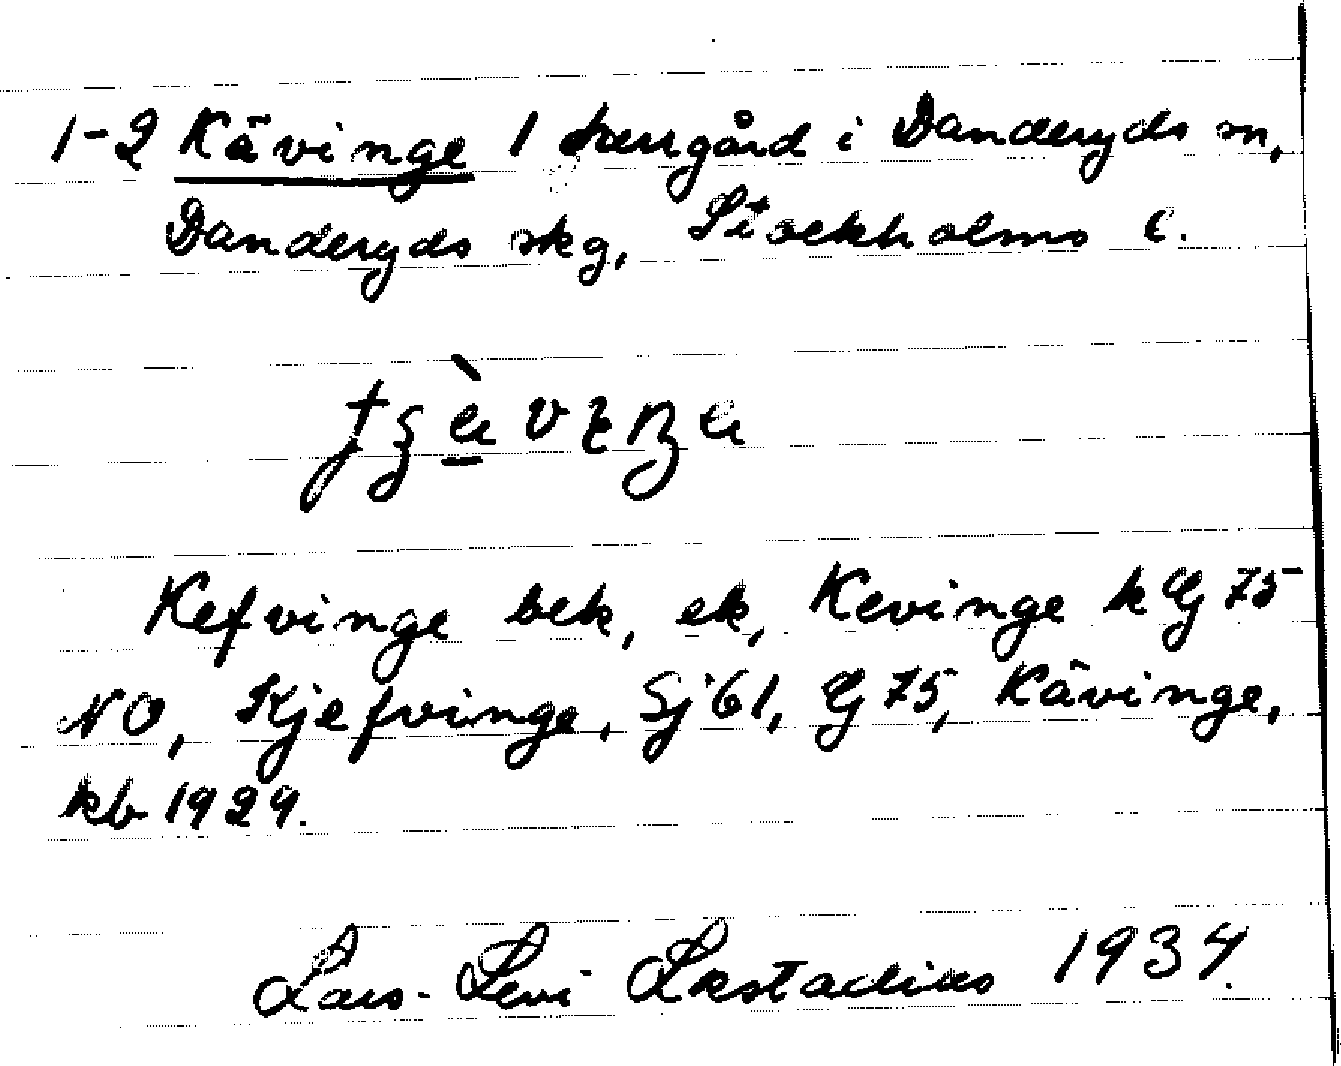 1-2 Kävinge / herrgård i Danderyds sn,
Danderyds skg, Stockholms l.
Kefvinge bek, ek, Kevinge k G 75
NO, Kjefvinge, Sj 61, G 75, Kävinge,
kb 1929.
Lars-Levi Læstadius 1934.